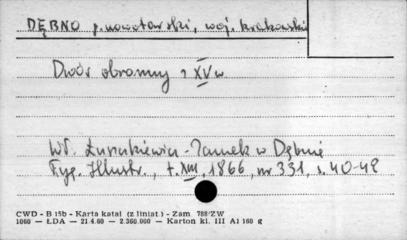 DĘBNO p. nowotarski, woj. krakowskie
Dwór obronny z XV w.
Wł. Łuszczkiewicz - Zamek w Dębnie
Tyg. Illustr., t. XIII, 1866, nr 331, s. 40-42
CWD - B 15b - Karta katal (z liniat.) - Zam. 788/ZW
1060 — ŁDA — 21.4.60 - 2.360.000 — Karton kl. III A1 160 g